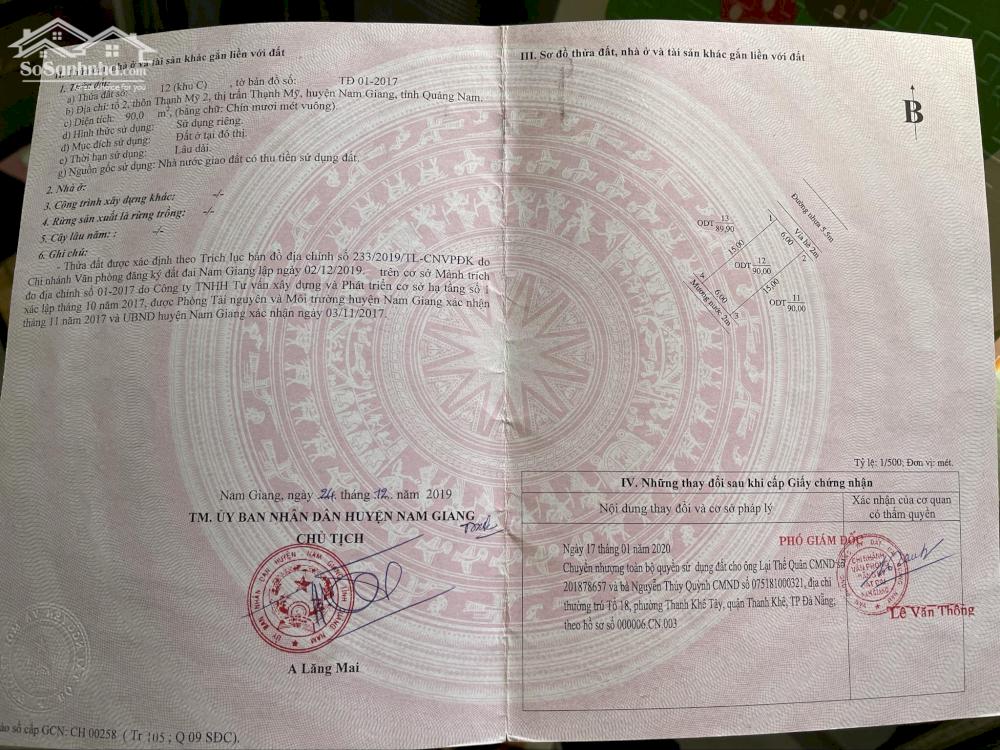 SoSanhnha.com
Best home for you
nhà ở và tài sản khác gắn liền với đất
1. Thửa đất:
a) Thửa đất số: 12 (khu C) , tờ bản đồ số: TĐ 01-2017
b) Địa chỉ: tổ 2, thôn Thạnh Mỹ 2, thị trấn Thạnh Mỹ, huyện Nam Giang, tỉnh Quảng Nam.
c) Diện tích: 90,0 m², (bằng chữ: Chín mươi mét vuông)
d) Hình thức sử dụng: Sử dụng riêng.
đ) Mục đích sử dụng: Đất ở tại đô thị.
e) Thời hạn sử dụng: Lâu dài.
g) Nguồn gốc sử dụng: Nhà nước giao đất có thu tiền sử dụng đất.
2. Nhà ở: -/-
3. Công trình xây dựng khác: -/-
4. Rừng sản xuất là rừng trồng: -/-
5. Cây lâu năm: : -/-
6. Ghi chú:
- Thửa đất được xác định theo Trích lục bản đồ địa chính số 233/2019/TL-CNVPĐK do
Chi nhánh Văn phòng đăng ký đất đai Nam Giang lập ngày 02/12/2019. trên cơ sở Mảnh trích
đo địa chính số 01-2017 do Công ty TNHH Tư vấn xây dựng và Phát triển cơ sở hạ tầng số 1
xác lập tháng 10 năm 2017, được Phòng Tài nguyên và Môi trường huyện Nam Giang xác nhận
tháng 11 năm 2017 và UBND huyện Nam Giang xác nhận ngày 03/11/2017.
Nam Giang, ngày 24 tháng 12 năm 2019
TM. ỦY BAN NHÂN DÂN HUYỆN NAM GIANG
CHỦ TỊCH
A Lăng Mai
ào sổ cấp GCN: CH 00258 ( Tr 105 ; Q 09 SĐC).
III. Sơ đồ thửa đất, nhà ở và tài sản khác gắn liền với đất
B
Đường nhựa 5.5m
Vỉa hè 2m
ODT 13 89,90
1
15,00
6,00
2
ODT 12 90,00
4
6,00
15,00
ODT 11 90,00
Mương nước 2m
3
Tỷ lệ: 1/500; Đơn vị: mét.
IV. Những thay đổi sau khi cấp Giấy chứng nhận
Nội dung thay đổi và cơ sở pháp lý
Xác nhận của cơ quan
có thẩm quyền
PHÓ GIÁM ĐỐC
Ngày 17 tháng 01 năm 2020
Chuyển nhượng toàn bộ quyền sử dụng đất cho ông Lại Thế Quân CMND số
201878657 và bà Nguyễn Thúy Quỳnh CMND số 075181000321, địa chỉ
thường trú Tổ 18, phường Thanh Khê Tây, quận Thanh Khê, TP Đà Nẵng;
theo hồ sơ số 000006.CN.003
CHI NHÁNH
VĂN PHÒNG
NAM GIANG
Lê Văn Thông